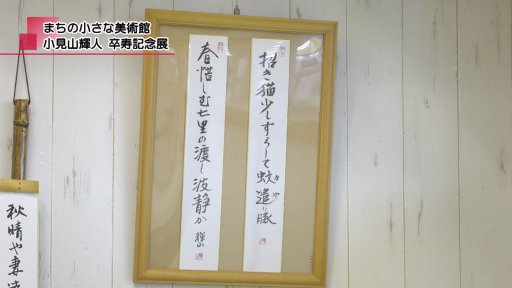 まちの小さな美術館
小見山輝人 卒寿記念展
招き猫少しずらして蚊遣り豚
かや
春惜しむ七里の渡し波静か
輝山
秋晴や妻